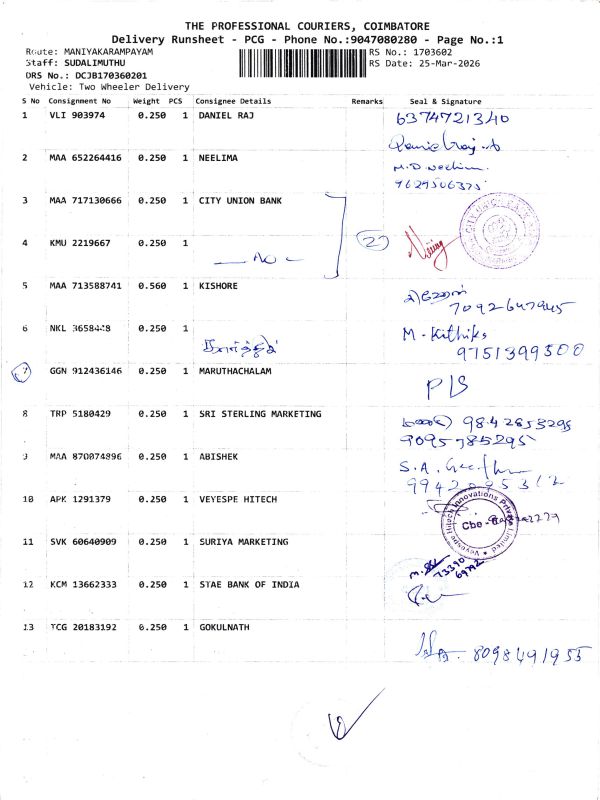 THE PROFESSIONAL COURIERS, COIMBATORE
Delivery Runsheet - PCG - Phone No.:9047080280 - Page No.:1
Route: MANIYAKARAMPAYAM
RS No.: 1703602
Staff: SUDALIMUTHU
RS Date: 25-Mar-2026
DRS No.: DCJB170360201
Vehicle: Two Wheeler Delivery
S No Consignment No Weight PCS Consignee Details Remarks Seal & Signature
1 VLI 903974 0.250 1 DANIEL RAJ 6374721340
2 MAA 652264416 0.250 1 NEELIMA
9629506375
3 MAA 717130666 0.250 1 CITY UNION BANK
2
4 KMU 2219667 0.250 1
5 MAA 713588741 0.560 1 KISHORE
7092647945
6 NKL 3658448 0.250 1 M. Kithiks
9751399500
7 GGN 912436146 0.250 1 MARUTHACHALAM
8 TRP 5180429 0.250 1 SRI STERLING MARKETING 9842853295
9095785295
9 MAA 870074896 0.250 1 ABISHEK S.A.
10 APK 1291379 0.250 1 VEYESPE HITECH
Veyespe Hitech Innovations Private Limited
Cbe
11 SVK 60640909 0.250 1 SURIYA MARKETING
12 KCM 13662333 0.250 1 STAE BANK OF INDIA
13 TCG 20183192 0.250 1 GOKULNATH
8098491955